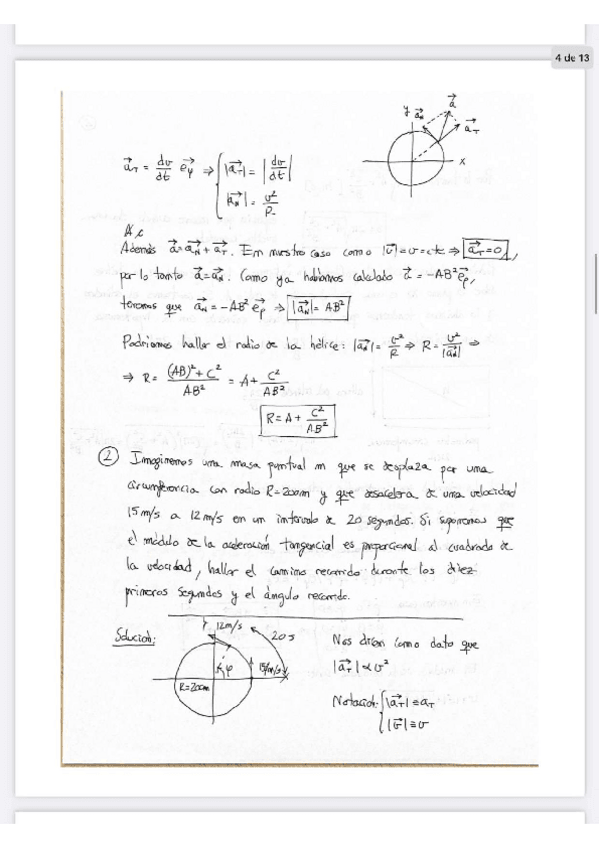 4 de 13
y
a⃗_N
a⃗
a⃗_T
x
a⃗_T = dv/dt e⃗_φ ⇒ { |a⃗_T| = |dv/dt|
|a⃗_N| = v²/ρ
Además a⃗ = a⃗_N + a⃗_T. En nuestro caso como |v⃗| = v = cte ⇒ a⃗_T = 0,
por lo tanto a⃗ = a⃗_N. Como ya habíamos calculado a⃗ = -AB² e⃗_ρ,
tenemos que a⃗_N = -AB² e⃗_ρ ⇒ |a⃗_N| = AB²
Podríamos hallar el radio de la hélice: |a⃗_N| = v²/R ⇒ R = v²/|a⃗_N| ⇒
⇒ R = ((AB)² + C²)/AB² = A + C²/AB²
R = A + C²/AB²
② Imaginemos una masa puntual m que se desplaza por una
circunferencia con radio R=200m y que desacelera de una velocidad
15m/s a 12m/s en un intervalo de 20 segundos. Si suponemos que
el módulo de la aceleración tangencial es proporcional al cuadrado de
la velocidad, hallar el camino recorrido durante los diez
primeros segundos y el ángulo recorrido.
Solución:
12m/s
20s
φ
15m/s
R=200m
Nos dicen como dato que
|a⃗_T| ∝ v²
Notación: { |a⃗_T| ≡ a_T
|v⃗| ≡ v